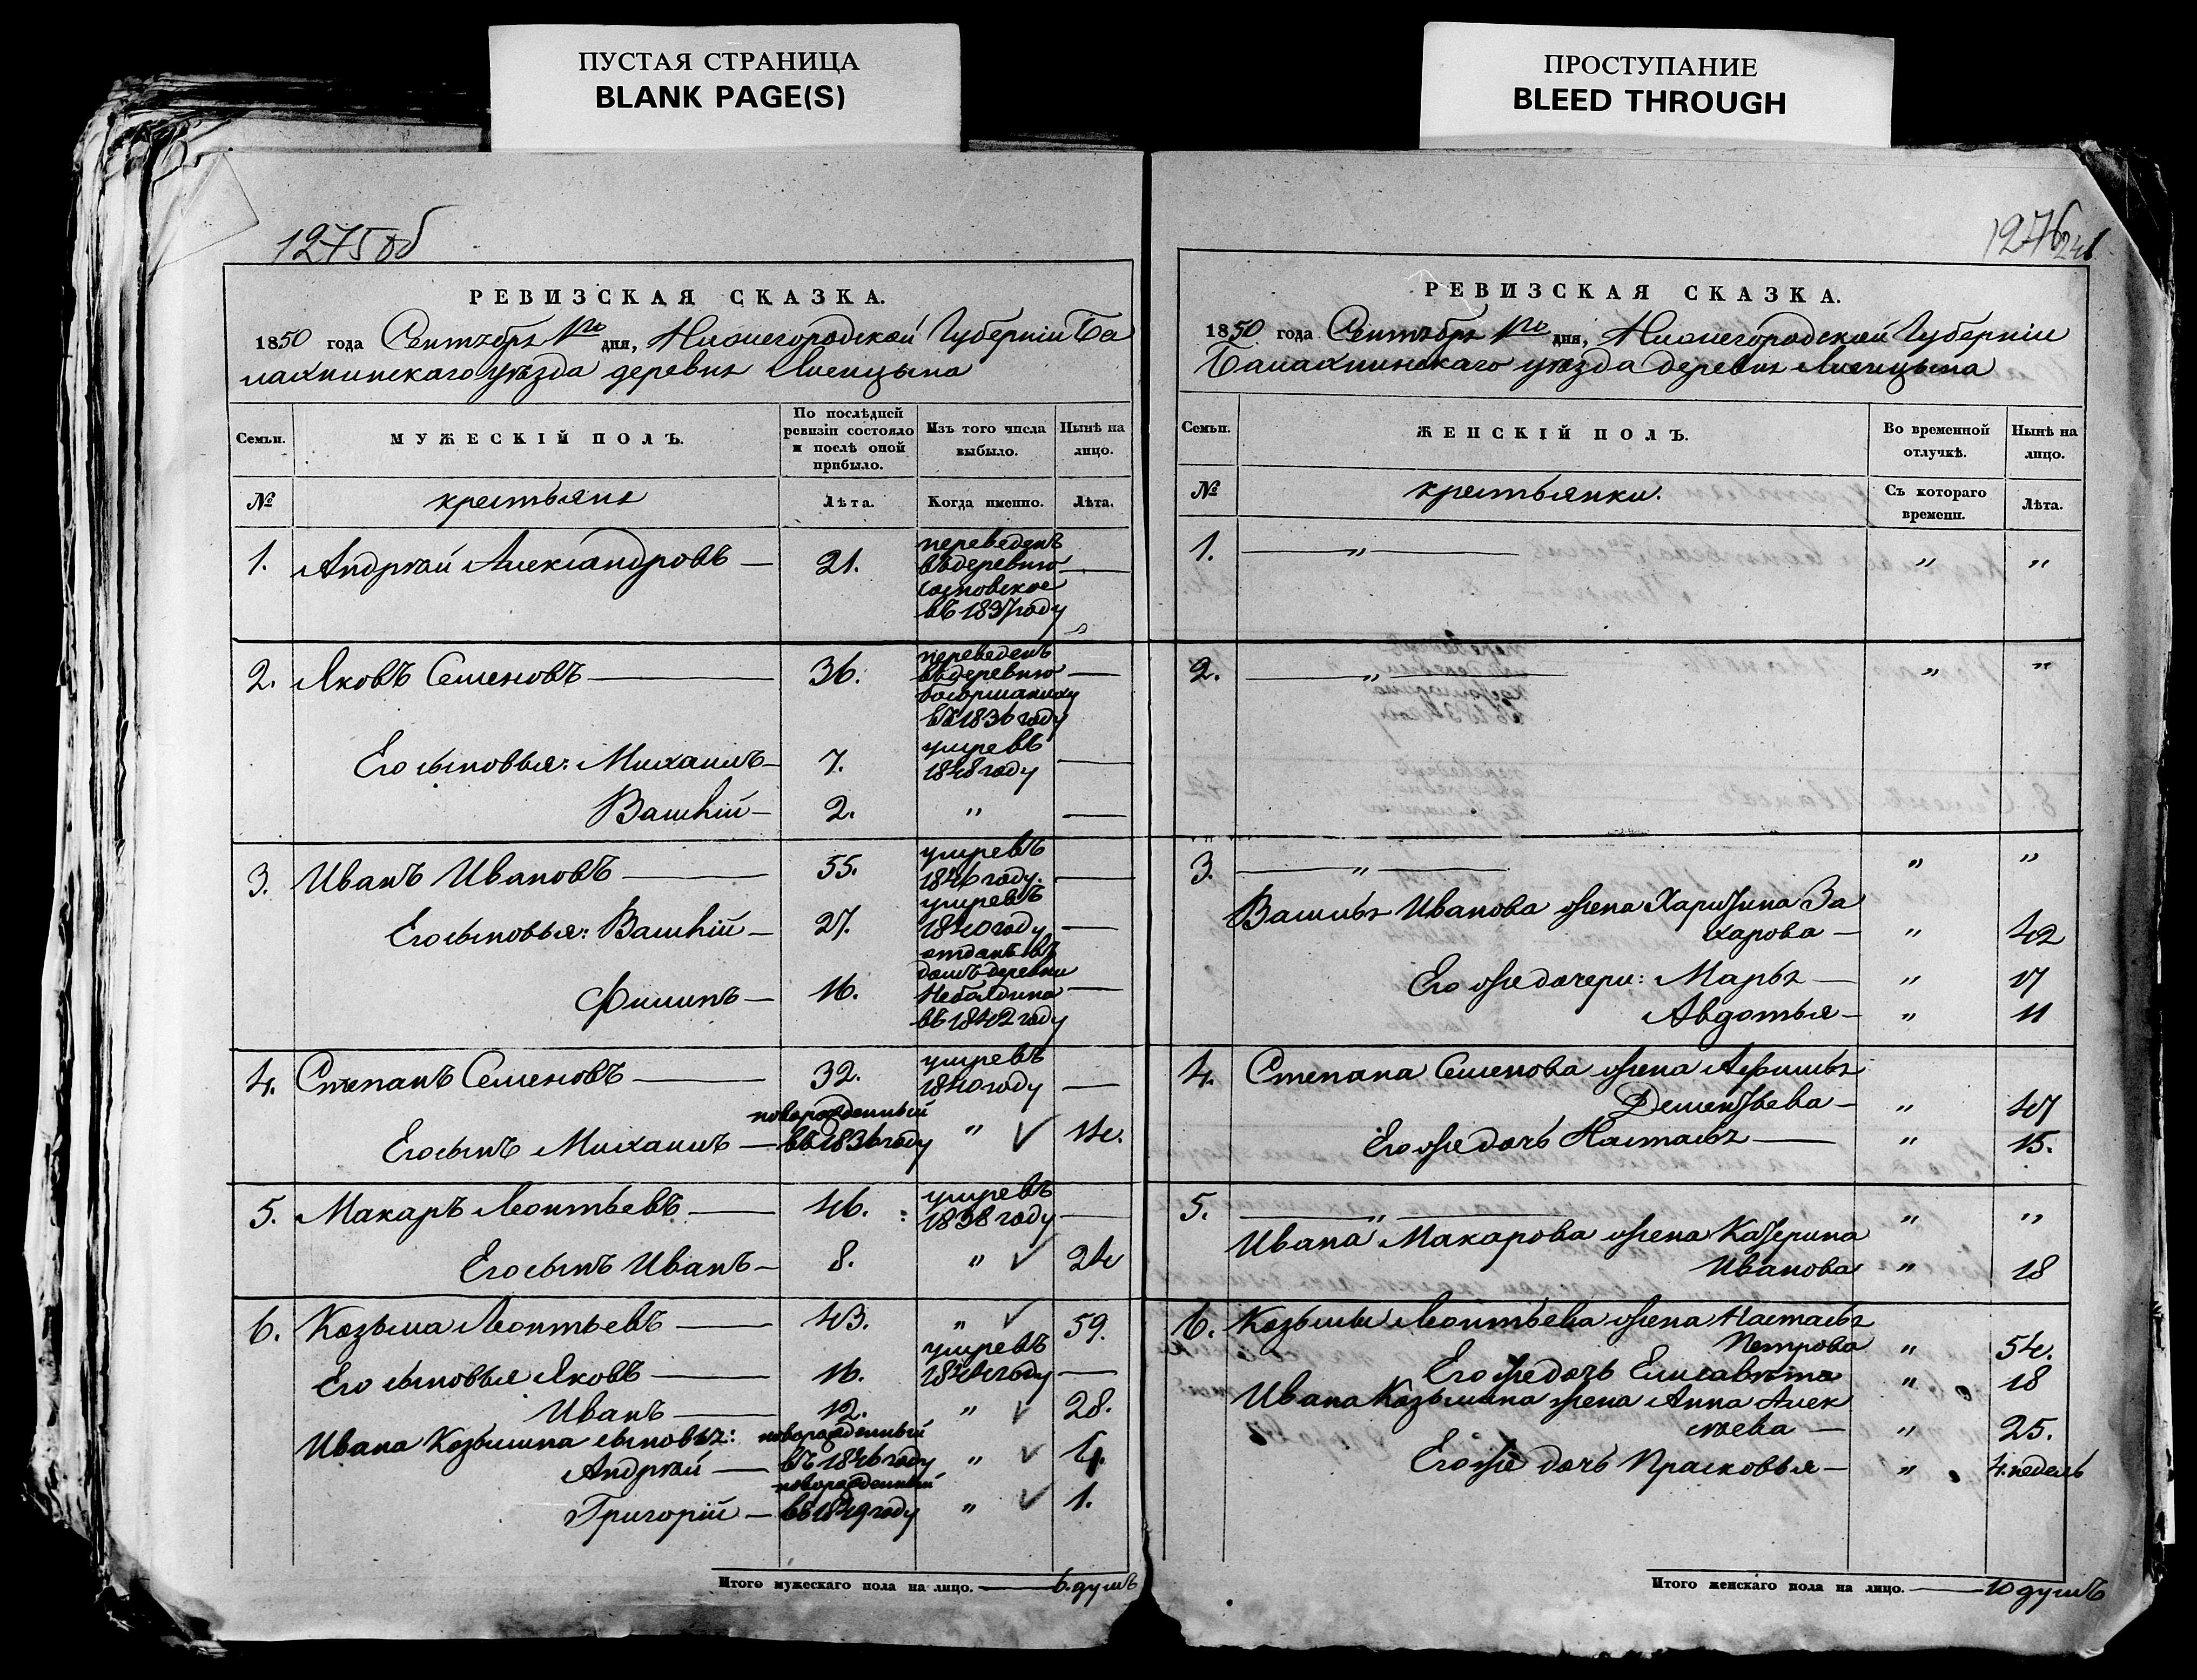 ПУСТАЯ СТРАНИЦА
BLANK PAGE(S)
ПРОСТУПАНИЕ
BLEED THROUGH
1275об
РЕВИЗСКАЯ СКАЗКА.
1850 года Сентября 1го дня, Нижегородской Губерніи Ба
лахнинскаго уѣзда деревни
Семьи.
МУЖЕСКІЙ ПОЛЪ.
По послѣдней
ревизіи состояло
и послѣ оной
прибыло.
Изъ того числа
выбыло.
Нынѣ на
лицо.
№
крестьяне
Лѣта.
Когда именно.
Лѣта.
1. Андрѣй Александровъ — 21. переведенъ
въ деревню —
въ 1837 году
2. Яковъ Семеновъ — 36. переведенъ
въ деревню —
въ 1836 году
Его сыновья: Михаилъ — 7. умре въ
1848 году —
Василій — 2. „ —
3. Иванъ Ивановъ — 55. умре въ
1846 году. —
Его сыновья: Василій — 27. умре въ
1840 году —
Филипъ — 16. отданъ въ
домъ деревни
въ 1842 году —
4. Степанъ Семеновъ — 32. умре въ
1840 году —
Его сынъ Михаилъ — новорожденный
въ 1836 году „ 14.
5. Макаръ Леонтьевъ — 46. умре въ
1838 году —
Его сынъ Иванъ — 8. „ 24
6. Козьма Леонтьевъ — 43. „ 59.
Его сыновья Яковъ — 16. умре въ
1844 году —
Иванъ — 12. „ 28.
Ивана Козьмина сыновья:
Андрѣй — новорожденный
въ 1846 году „ 4.
Григорій — новорожденный
въ 1849 году „ 1.
Итого мужескаго пола на лицо. — 6. душъ
1276
241
РЕВИЗСКАЯ СКАЗКА.
1850 года Сентября 1го дня, Нижегородской Губерніи
Балахнинскаго уѣзда деревни
Семьи.
ЖЕНСКІЙ ПОЛЪ.
Во временной
отлучкѣ.
Нынѣ на
лицо.
№
крестьянки.
Съ котораго
времени.
Лѣта.
1. — „ — „ „
2. — „ — „ „
3. — „ — „ „
Василья Иванова жена Харитина За
харова — „ 42
Его же дочери: Марья — „ 17
Авдотья — „ 11
4. Степана Семенова жена Афимья
Дементьева — „ 47
Его же дочь Настасья — „ 15.
5. — „ — „ „
Ивана Макарова жена Катерина
Иванова „ 18
6. Козьмы Леонтьева жена Настасья
Петрова „ 54.
Его же дочь Елисавета „ 18
Ивана Козьмина жена Анна Алек
сѣева — „ 25.
Его же дочь Прасковья — „ 4. недель
Итого женскаго пола на лицо. — 10 душъ